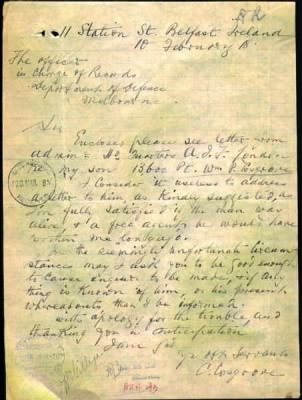 11 Station St. Belfast Ireland
18 February
The officer
in Charge of Records
Department of Defence
Melbourne
Sir
Enclosed please see letter from
Admin: Hd Quarters A.I.F. London
re my son 13600 Pt. Wm P. Cosgrove
I consider it useless to address
a letter to him as kindly suggested, as
I am fully satisfied if the man was
alive, & a free agent he would have
written me long ago.
In the exceedingly unfortunate circum
stances may I ask you to be good enough
to cause enquiry to be made, & if any
thing is known of him, or his present
whereabouts that I be informed
with apology for the trouble, and
thanking you in anticipation
I am Sir
Yr obt Servant
C. Cosgrove